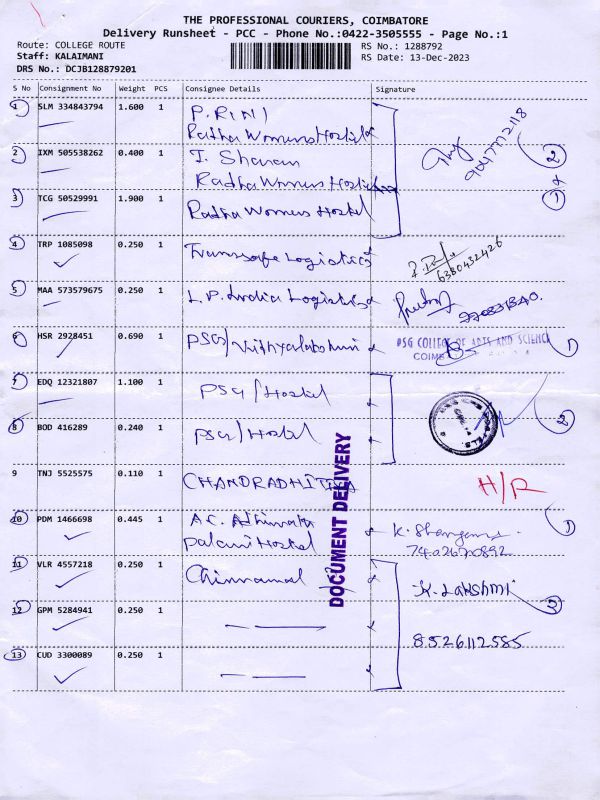 THE PROFESSIONAL COURIERS, COIMBATORE
Delivery Runsheet - PCC - Phone No.:0422-3505555 - Page No.:1
Route: COLLEGE ROUTE
RS No.: 1288792
Staff: KALAIMANI
RS Date: 13-Dec-2023
DRS No.: DCJB128879201
S No Consignment No Weight PCS Consignee Details Signature
1 SLM 334843794 1.600 1 P. RINI
Radha Womens Hostel
9047772118
2 IXM 505538262 0.400 1 T. Sharan
Radha Womens Hostel
2
+
1
3 TCG 50529991 1.900 1 Radha Womens Hostel
4 TRP 1085098 0.250 1 Transsafe Logistics
6380432426
5 MAA 573579675 0.250 1 L.P. India Logistics
6 HSR 2928451 0.690 1 PSG/Vidhyalakshmi
PSG COLLEGE OF ARTS AND SCIENCE
1
7 EDQ 12321807 1.100 1 PSG/Hostel
2
8 BOD 416289 0.240 1 PSG/Hostel
9 TNJ 5525575 0.110 1 CHANDRADHITYA
H/R
DOCUMENT DELIVERY
10 PDM 1466698 0.445 1 A.C.
Palani Hostel
K.
7402670892
1
11 VLR 4557218 0.250 1 Chinnamal
K. Lakshmi
3
12 GPM 5284941 0.250 1
8526112585
13 CUD 3300089 0.250 1